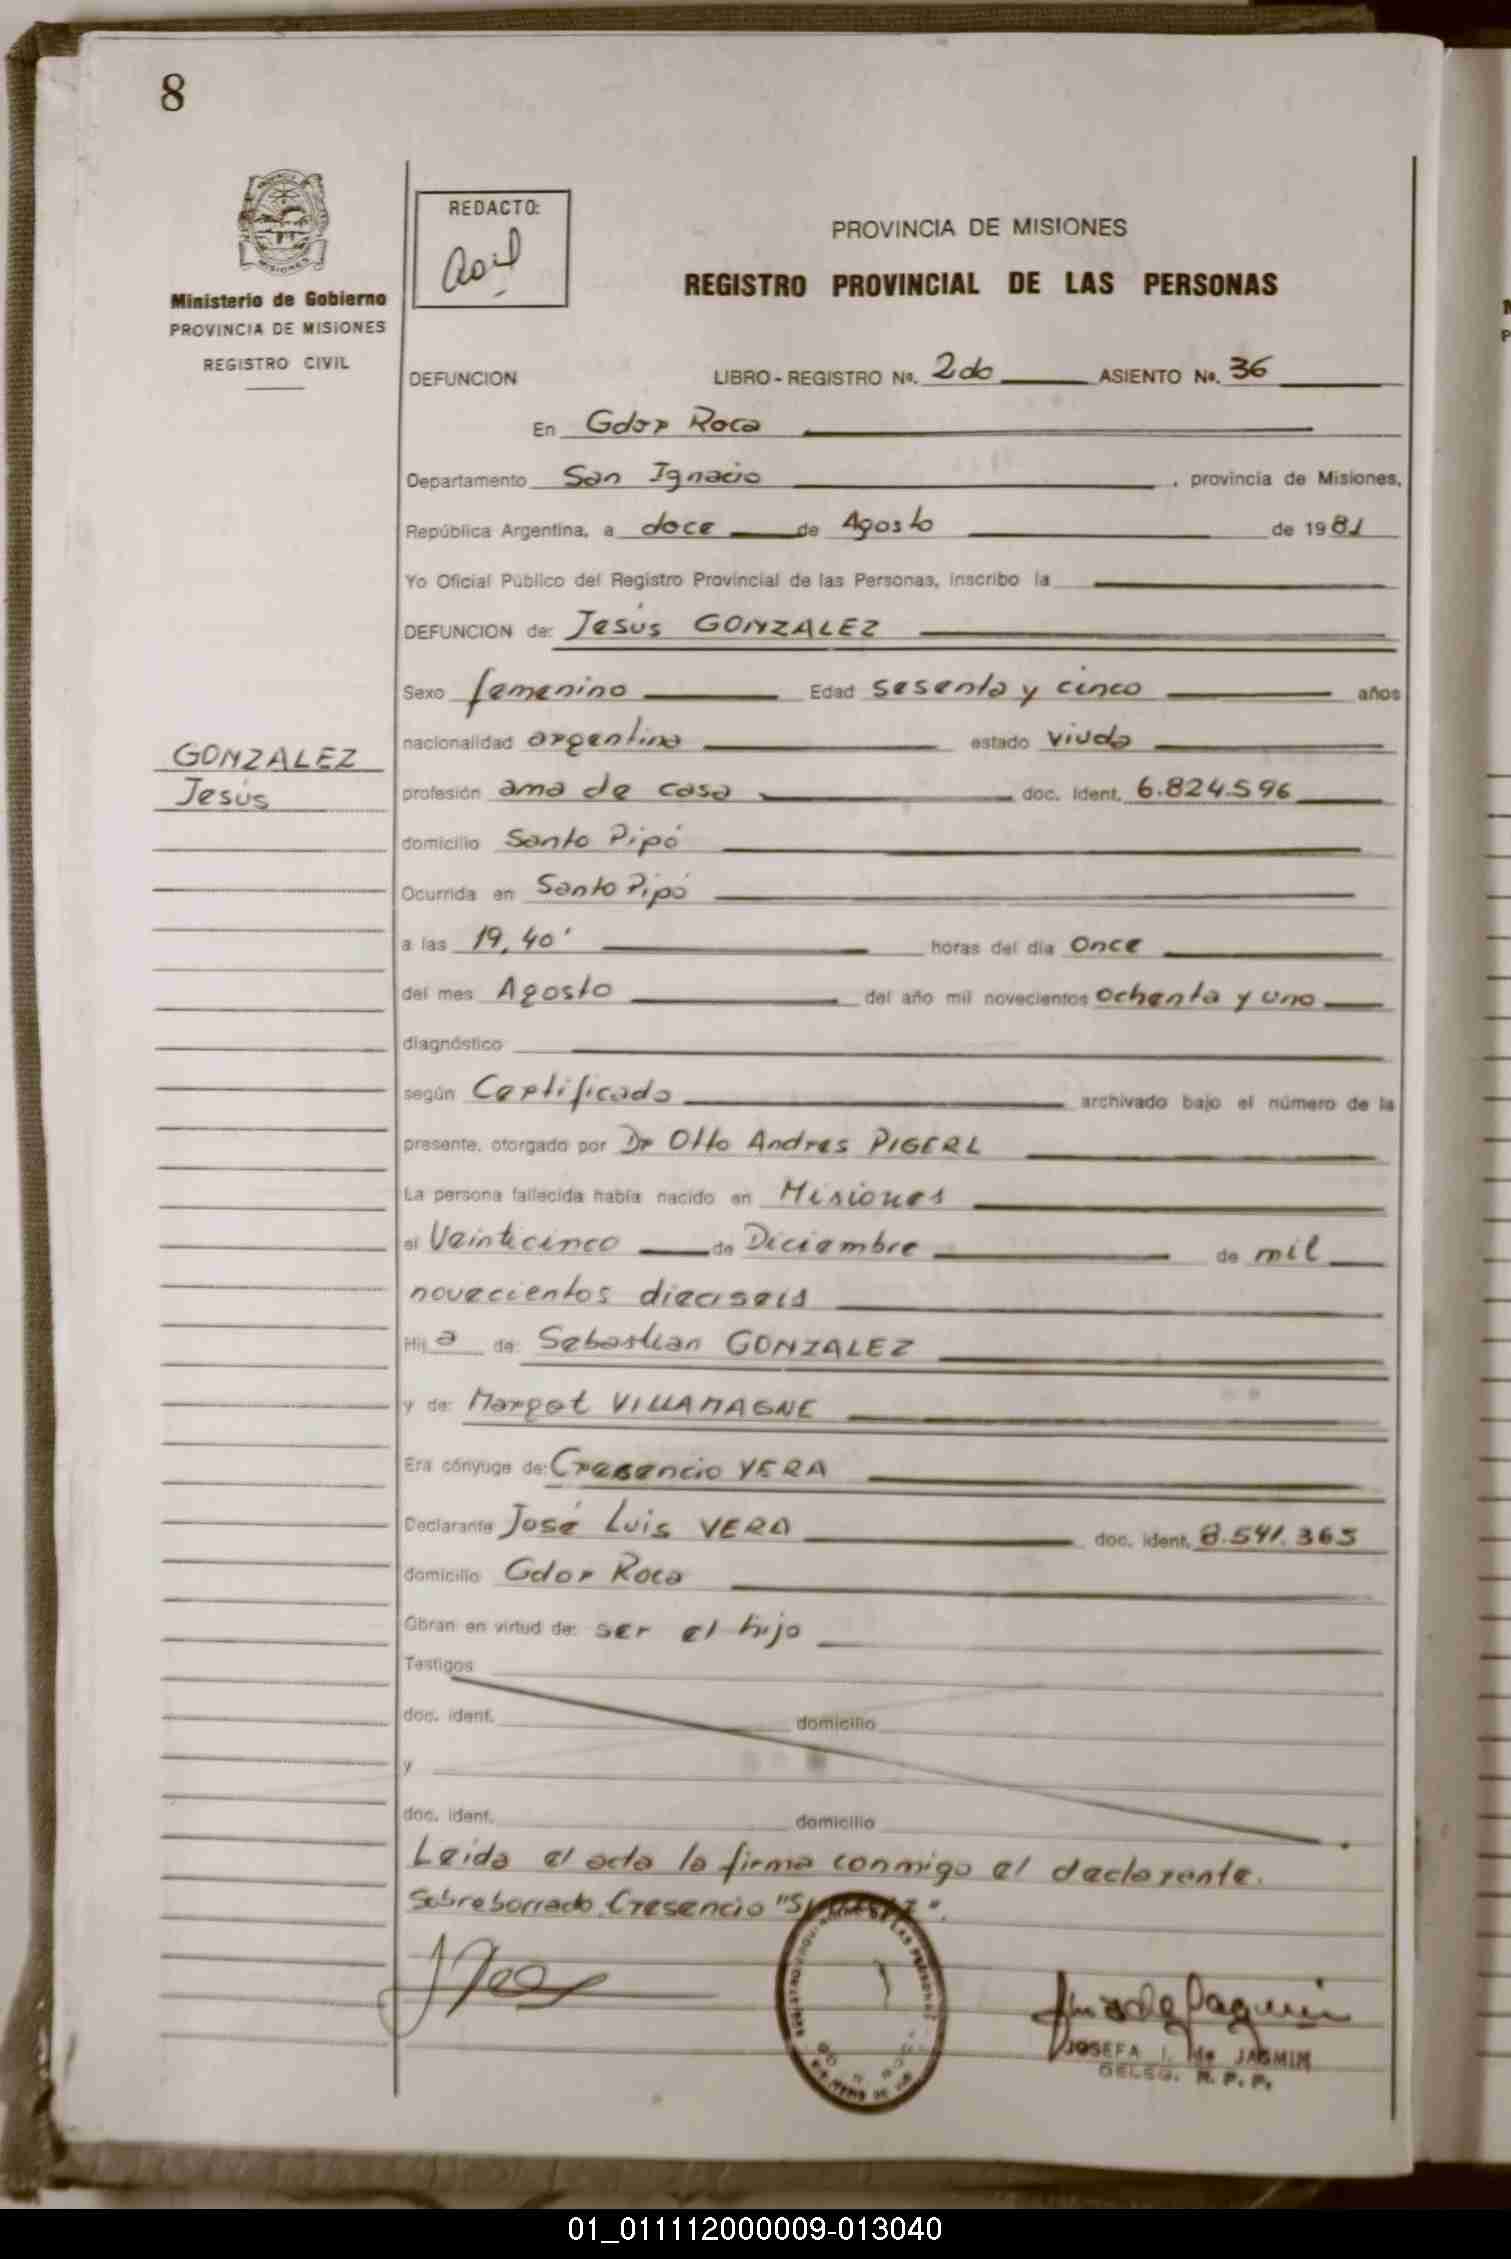 8
REDACTO:
PROVINCIA DE MISIONES
REGISTRO PROVINCIAL DE LAS PERSONAS
Ministerio de Gobierno
PROVINCIA DE MISIONES
REGISTRO CIVIL
DEFUNCION LIBRO - REGISTRO No. 2do ASIENTO No. 36
En Gdor Roca
Departamento San Ignacio , provincia de Misiones,
República Argentina, a doce de Agosto de 1981
Yo Oficial Público del Registro Provincial de las Personas, inscribo la
DEFUNCION de: Jesús GONZALEZ
Sexo femenino Edad sesenta y cinco años
GONZALEZ
Jesús
nacionalidad argentina estado viuda
profesión ama de casa doc. ident. 6.824.596
domicilio Santo Pipó
Ocurrida en Santo Pipó
a las 19,40' horas del día Once
del mes Agosto del año mil novecientos ochenta y uno
diagnóstico
según Certificado archivado bajo el número de la
presente, otorgado por Dr Otto Andres PIGERL
La persona fallecida había nacido en Misiones
el Veinticinco de Diciembre de mil
novecientos dieciseis
Hij a de: Sebastian GONZALEZ
y de: Margot VILLAMAGNE
Era cónyuge de: Cresencio VERA
Declarante José Luis VERA doc. ident. 8.541.365
domicilio Gdor Roca
Obran en virtud de: ser el hijo
Testigos
doc. ident. domicilio
y
doc. ident. domicilio
Leida el acta la firma conmigo el declarante.
Sobreborrado Cresencio
JOSEFA I. de JASMIN
DELEG. R. P. P.
01_011112000009-013040